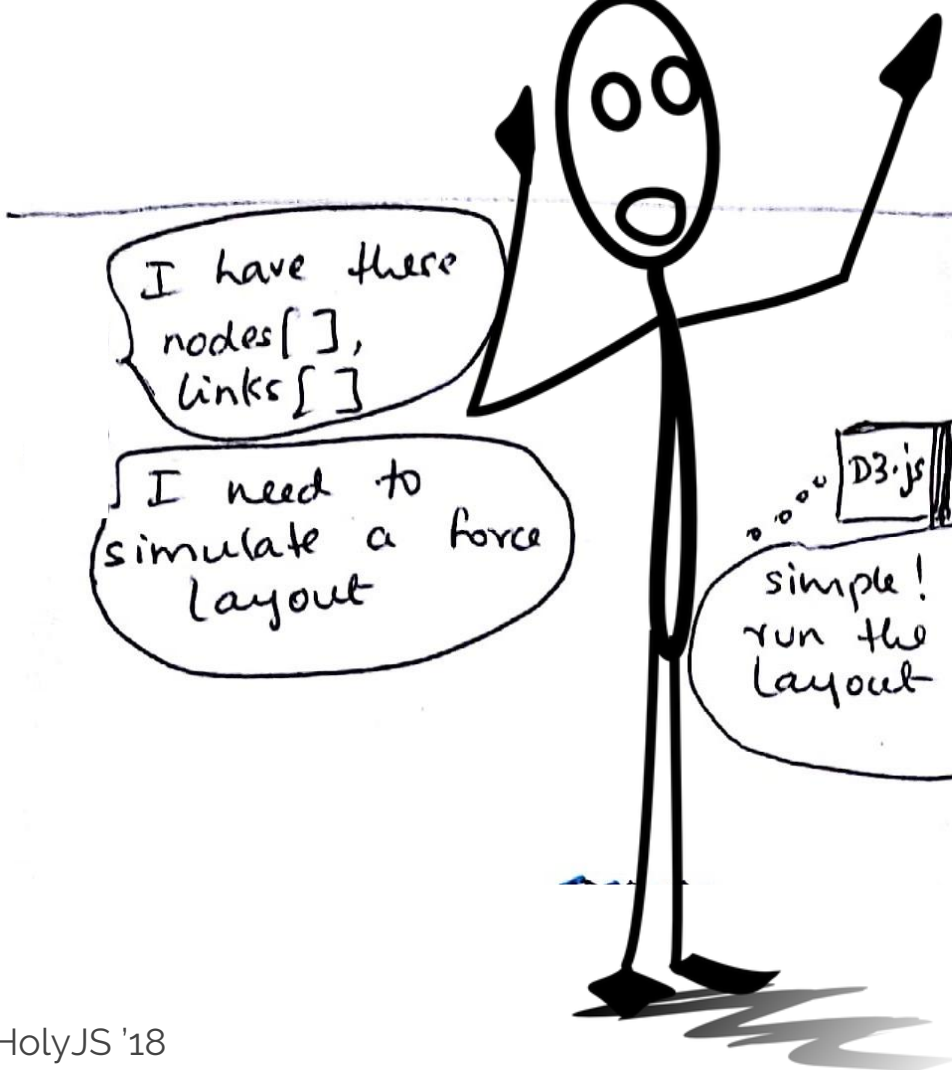 I have these
nodes[ ],
links[ ]
I need to
simulate a force
layout
D3.js
simple!
run the
layout
HolyJS '18